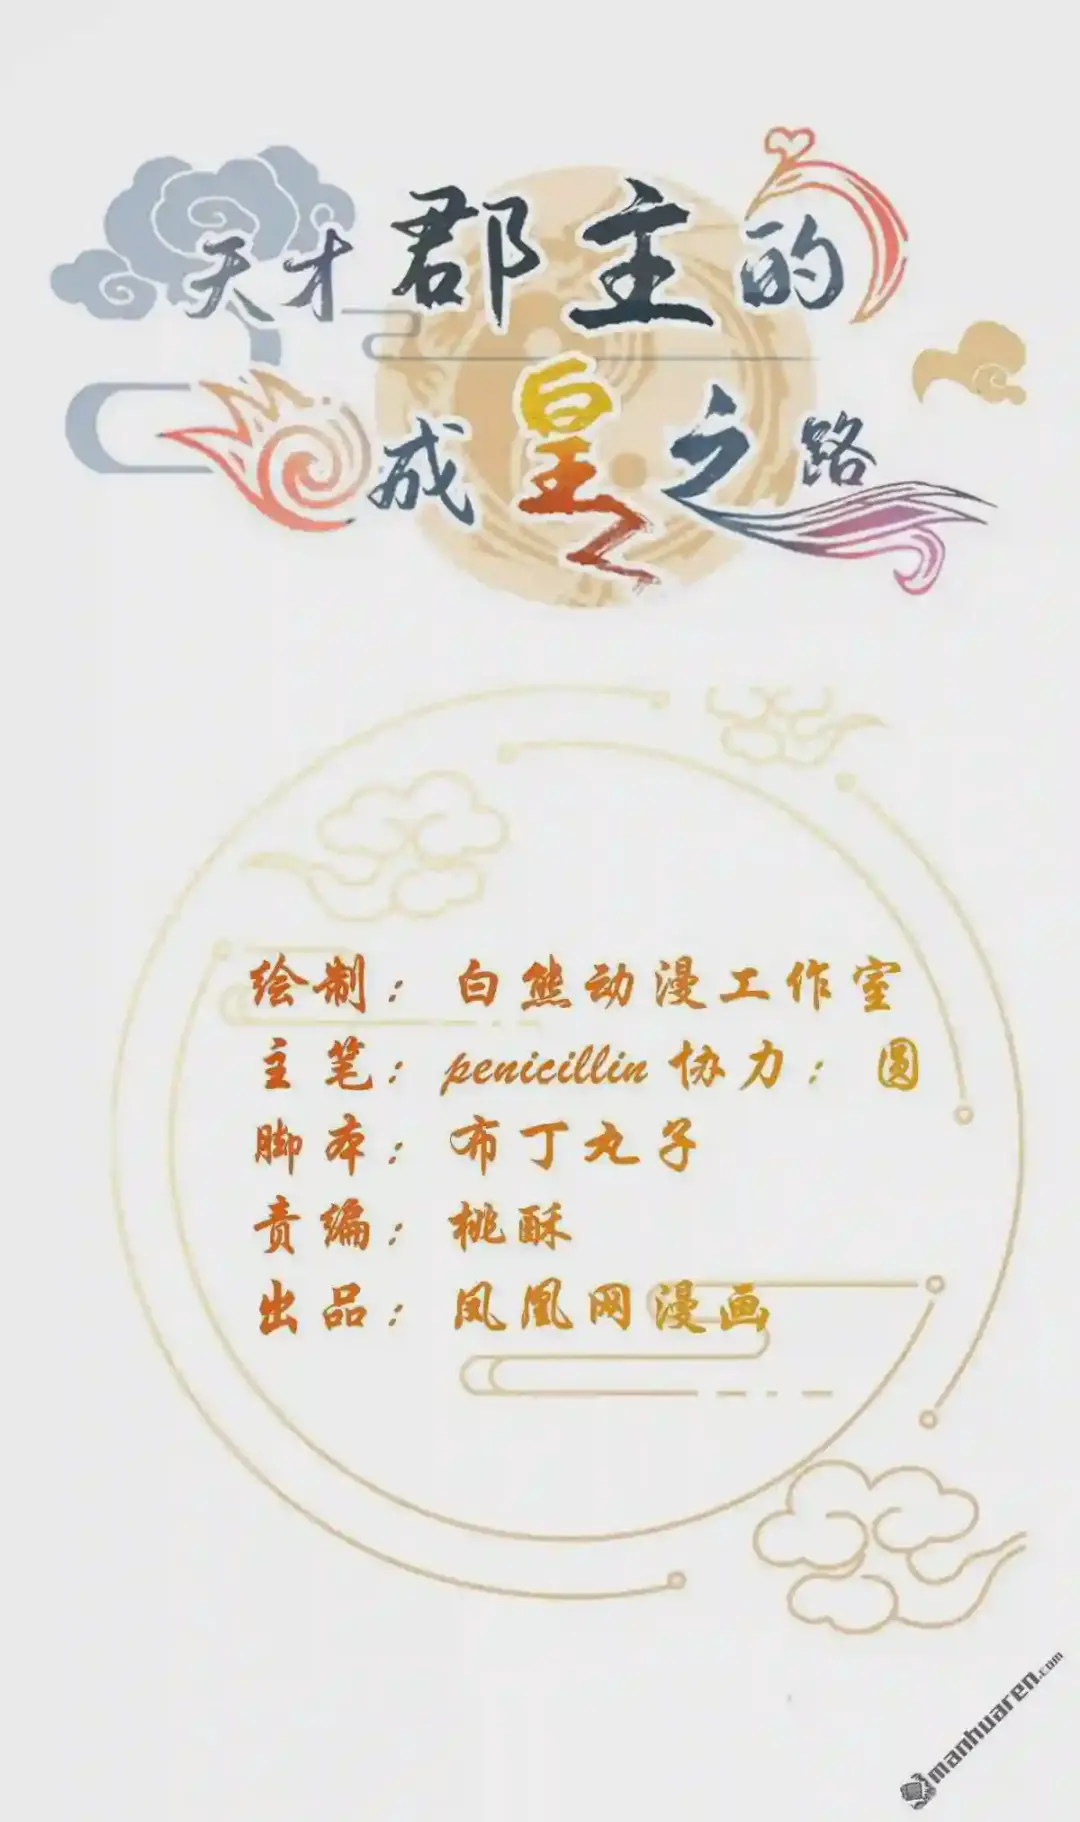 天才郡主的
成皇之路
绘制：白熊动漫工作室
主笔：penicillin 协力：圆
脚本：布丁丸子
责编：桃酥
出品：凤凰网漫画
manhuaren.com